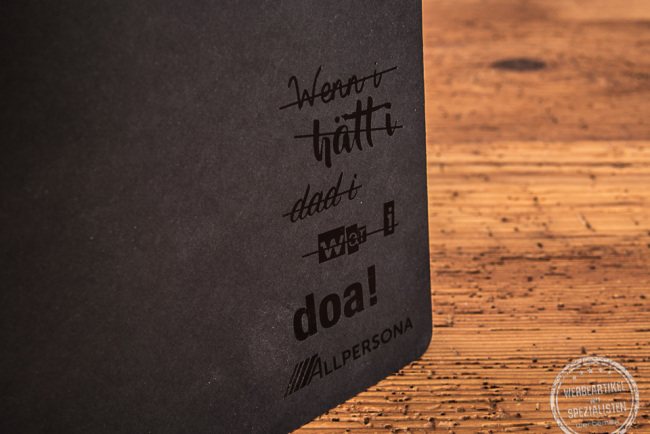 Wenn i
hätt i
dad i
wer i
doa!
ALLPERSONA
WERBEARTIKEL
SPEZIALISTEN